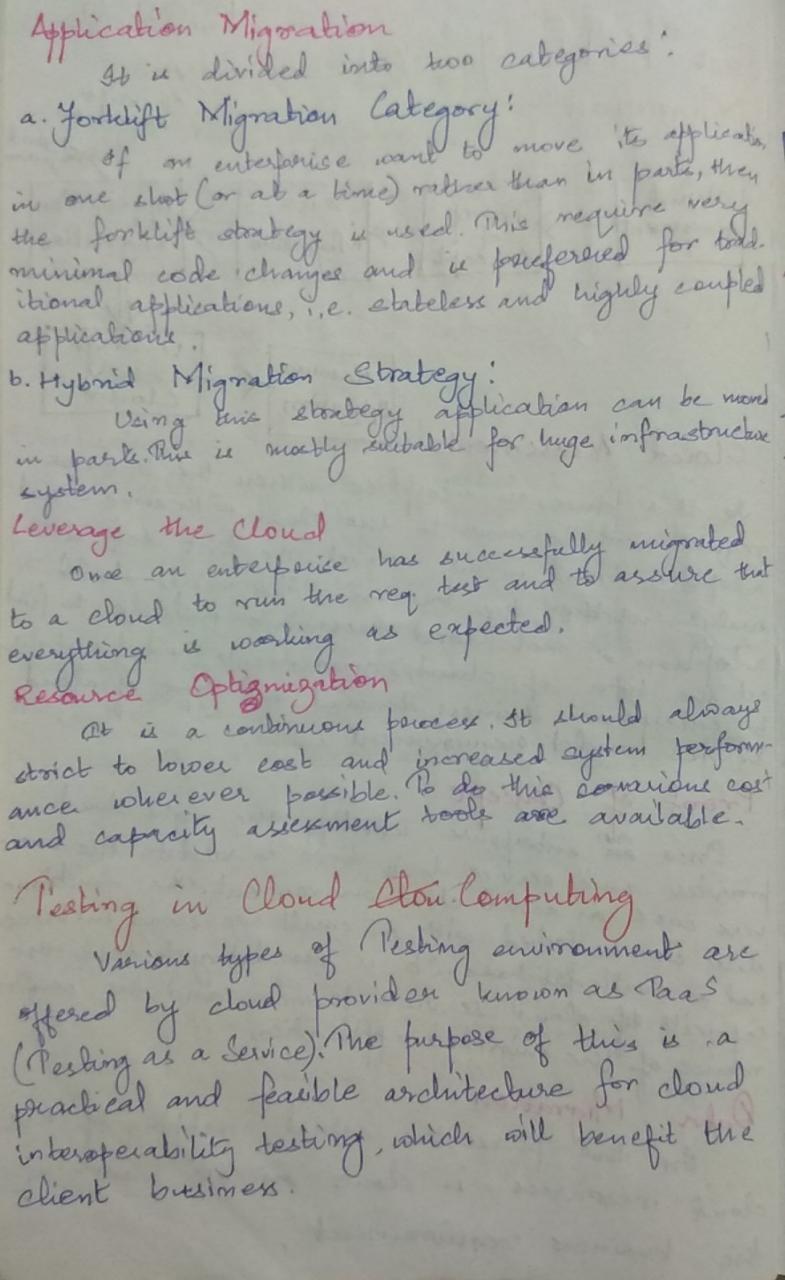 Application Migration
It is divided into two categories:
a. Forklift Migration Category:
If an enterprise want to move its applicatio,
in one shot (or at a time) rather than in parts, then
the forklift strategy is used. This require very
minimal code changes and is preferred for trad-
itional applications, i.e. stateless and highly coupled
applications.
b. Hybrid Migration Strategy:
Using this strategy application can be moved
in parts. This is mostly suitable for huge infrastructure
system.
Leverage the Cloud
Once an enterprise has successfully migrated
to a cloud to run the req. test and to assure that
everything is working as expected.
Resource Optimization
It is a continuous process. It should always
strict to lower cost and increased system perform-
ance wherever possible. To do this various cost
and capacity assessment tools are available.
Testing in Cloud Computing
Various types of Testing environment are
offered by cloud provider known as TaaS
(Testing as a Service). The purpose of this is a
practical and feasible architecture for cloud
interoperability testing, which will benefit the
client business.